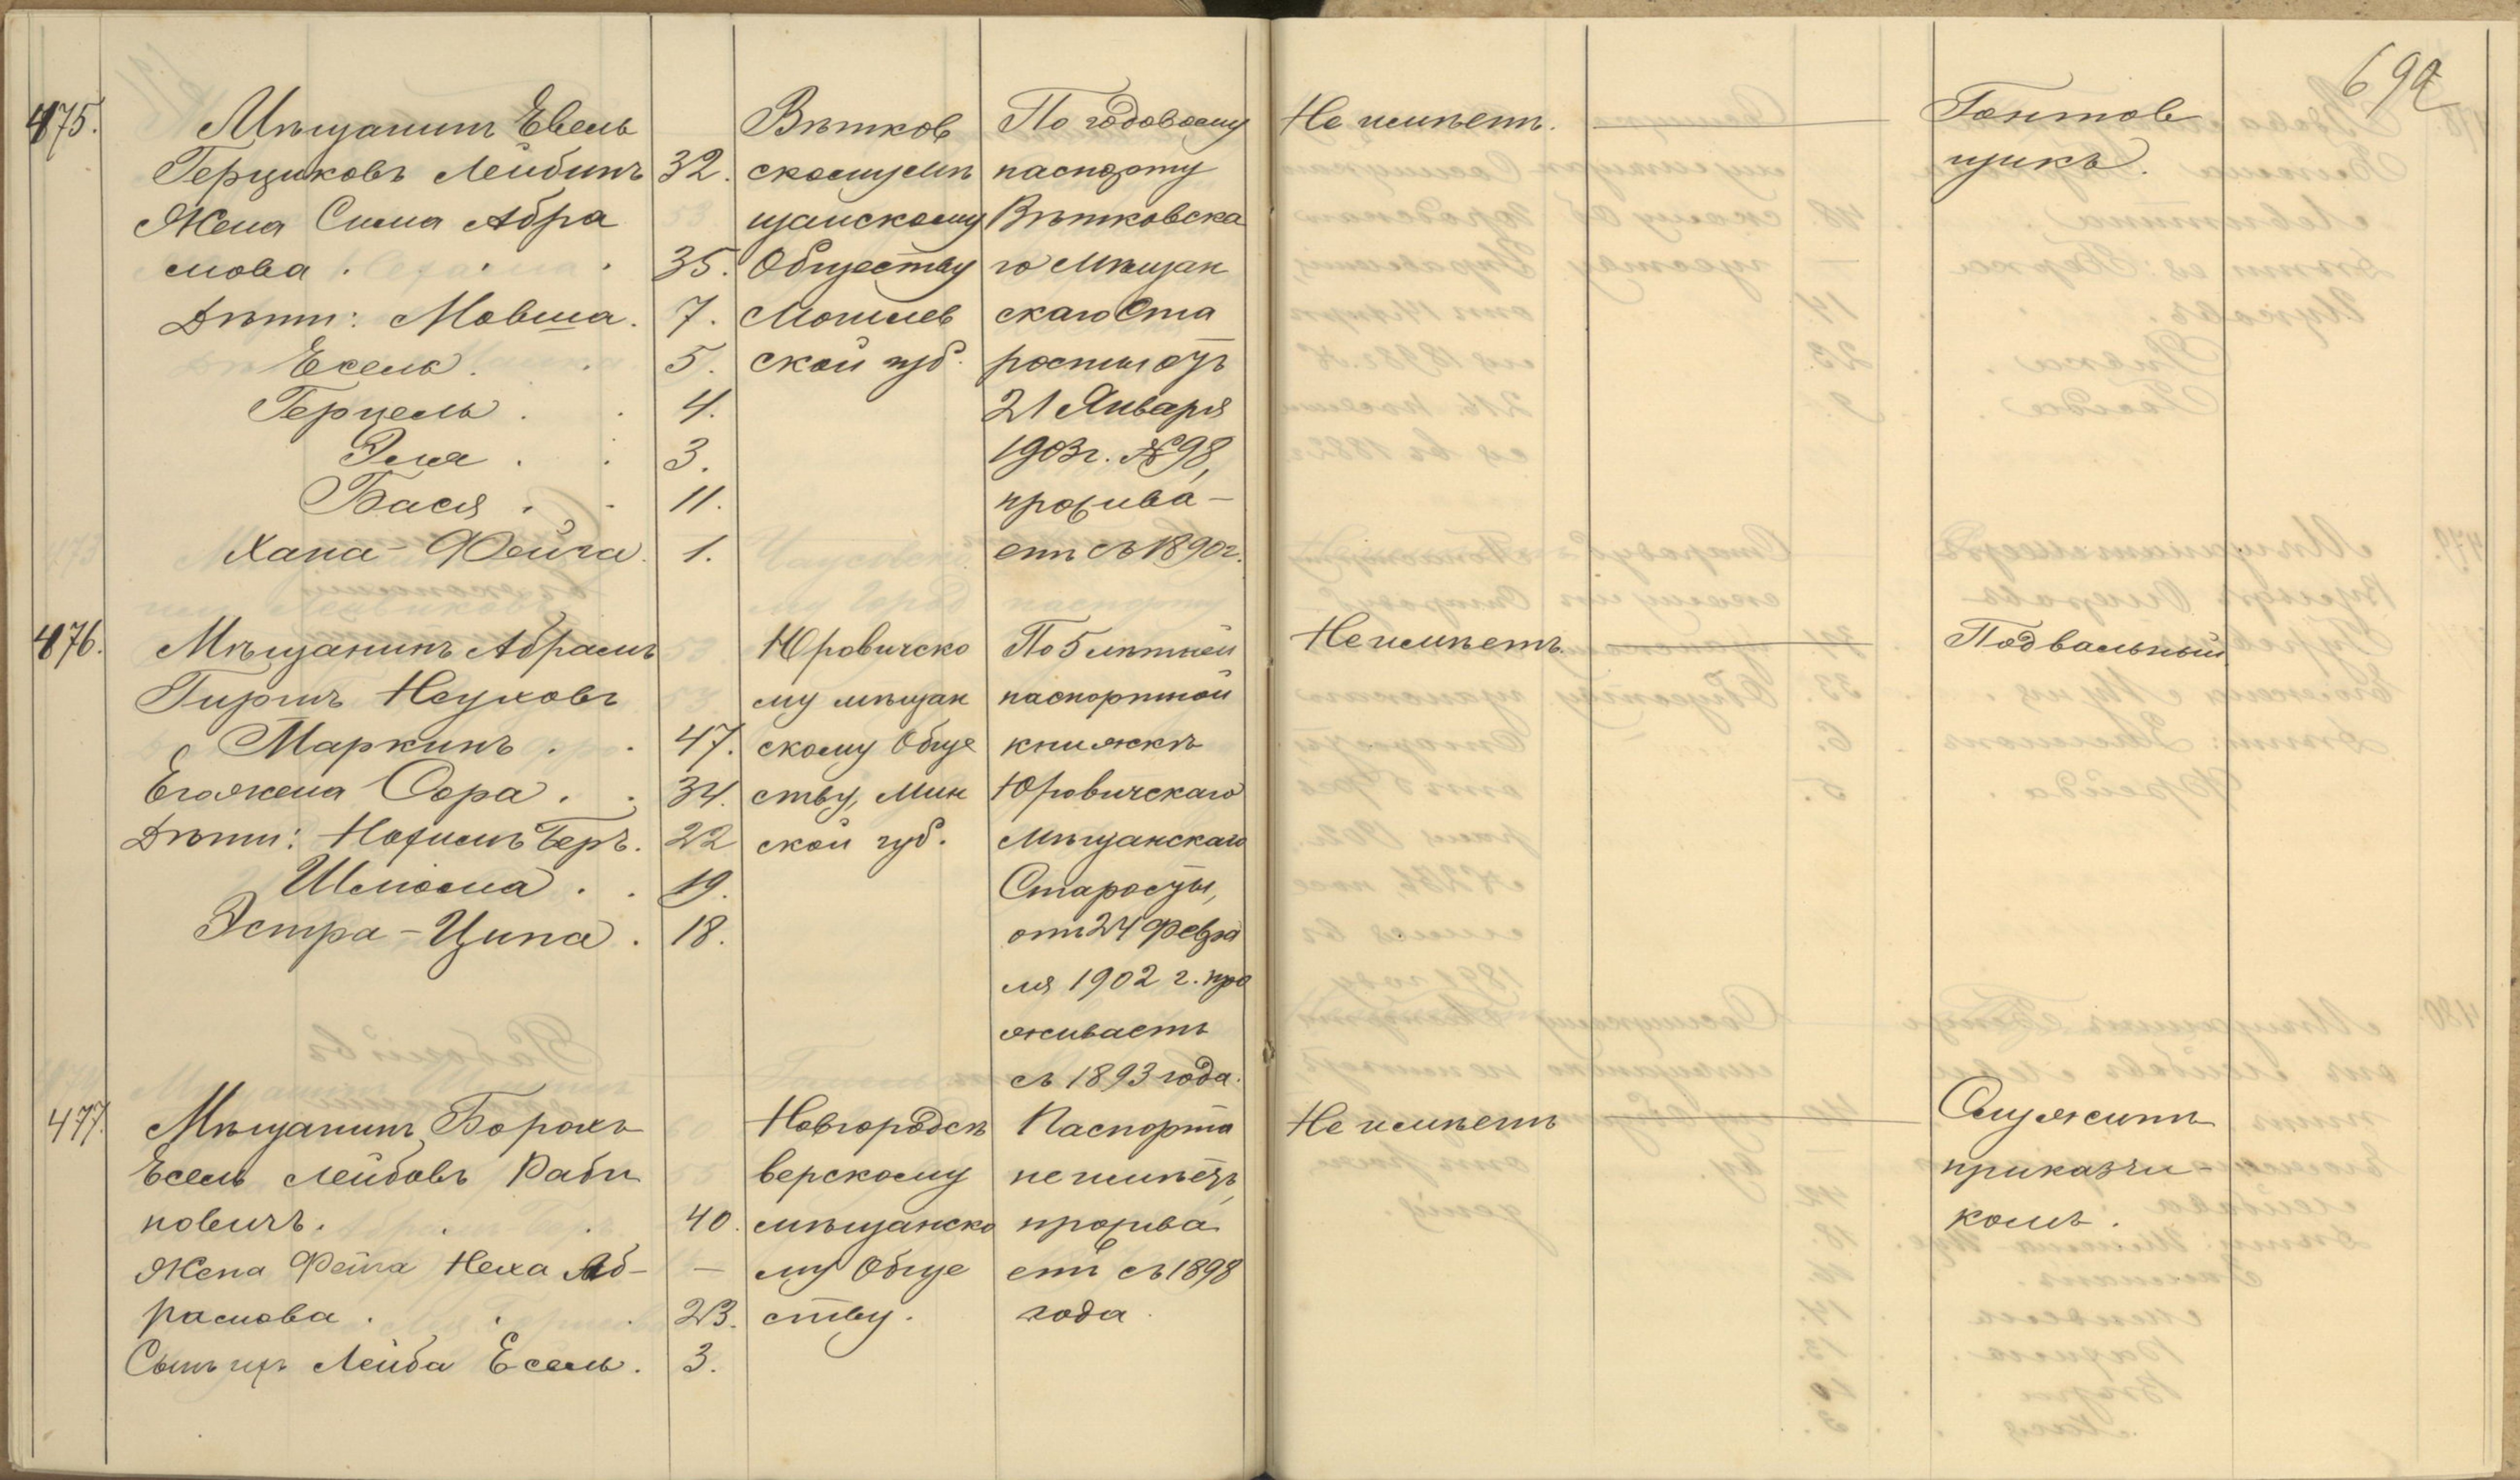 692
475.
Мѣщанинъ Евель
Герциковъ Лейбинъ 32.
Жена Сима Абра
мова . . . 35.
Дѣти: Мовша. 7.
Есель. . 5.
Герцель . . 4.
Эля . . 3.
Бася . . 11.
Хана-Фейга. 1.
Вѣтков
скому мѣ
щанскому
Обществу
Могилев
ской губ.
По годовому
паспорту
Вѣтковска
го Мѣщан
скаго Ста
росты отъ
21 Января
1903г. №98,
прожива-
етъ съ 1890г.
Не имѣетъ.
Гонтов
щикъ.
476.
Мѣщанинъ Абрамъ
Гиршъ Неуховъ
Маркинъ . . 47.
Его жена Сора . . 34.
Дѣти: Нохимъ Беръ. 22
Шлиома . . 19.
Эстра-Ципа . 18.
Юровичско
му мѣщан
скому Обще
ству, Мин
ской губ.
По 5 лѣтней
паспортной
книжкѣ
Юровичскаго
Мѣщанскаго
Старосты,
отъ 24 Февра
ля 1902 г. про
живаетъ
съ 1893 года.
Не имѣетъ.
Подвальный
477.
Мѣщанинъ Борохъ
Есель Лейбовъ Раби
новичъ. . . 40.
Жена Фейга Неха Аб- —
рамова . . . 23.
Сынъ ихъ Лейба Есель. 3.
Новгородсѣ
верскому
мѣщанско
му Обще
ству.
Паспорта
не имѣетъ,
прожива
етъ съ 1898
года.
Не имѣетъ
Служитъ
приказчи-
комъ.